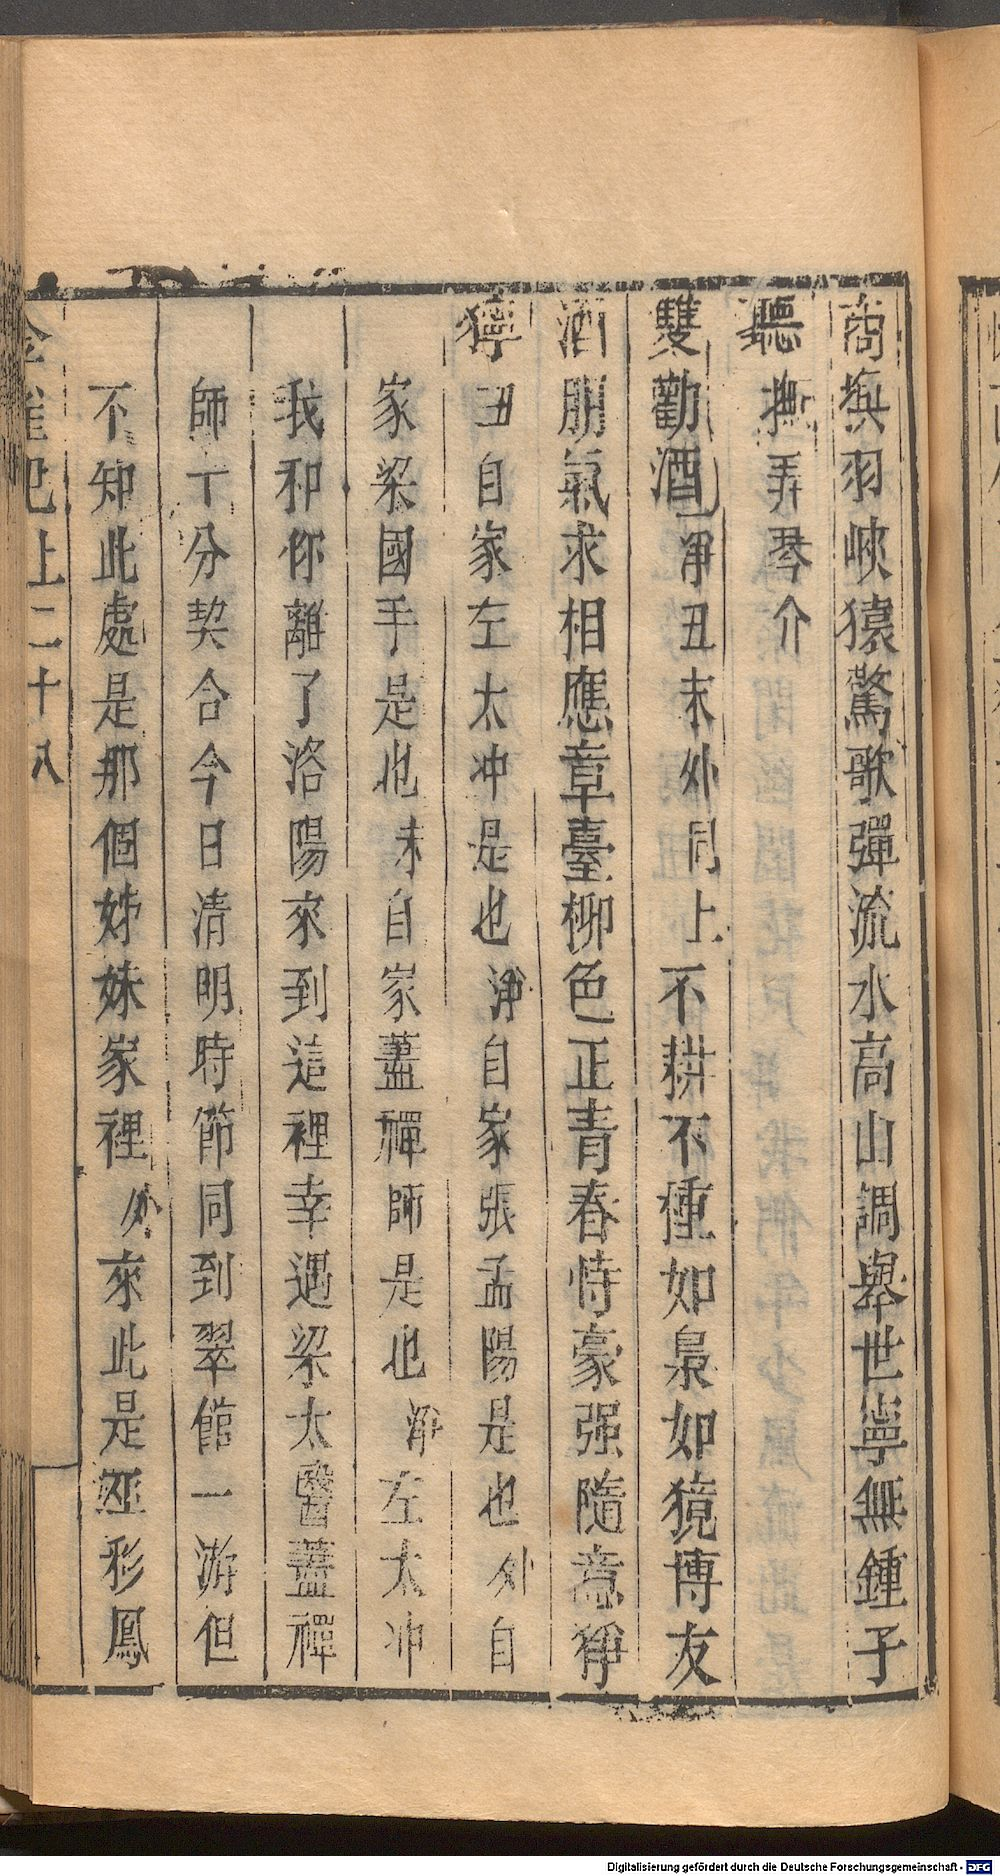 商撫羽峽猿驚歌彈流水高山調舉世寧無鍾子
聽撫弄琴介
雙勸酒净丑末外同上不耕不種如梟如獍博友
酒朋氣求相應章臺柳色正青春恃豪强隨意猙
獰丑自家左太冲是也淨自家張孟陽是也外自
家梁國手是也末自家藎禪師是也淨左太冲
我和你離了洛陽來到這裡幸遇梁太醫藎禪
師十分契合今日清明時節同到翠館一游但
不知此處是那個姊妹家裡外來此是巫彩鳳
金雀記上二十八
Digitalisierung gefördert durch die Deutsche Forschungsgemeinschaft - DFG